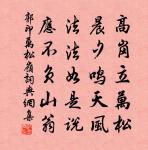 高崗立萬松
晨夕鳴天風
法法如是說
應不負山翁
郭印萬松嶺詞典網集